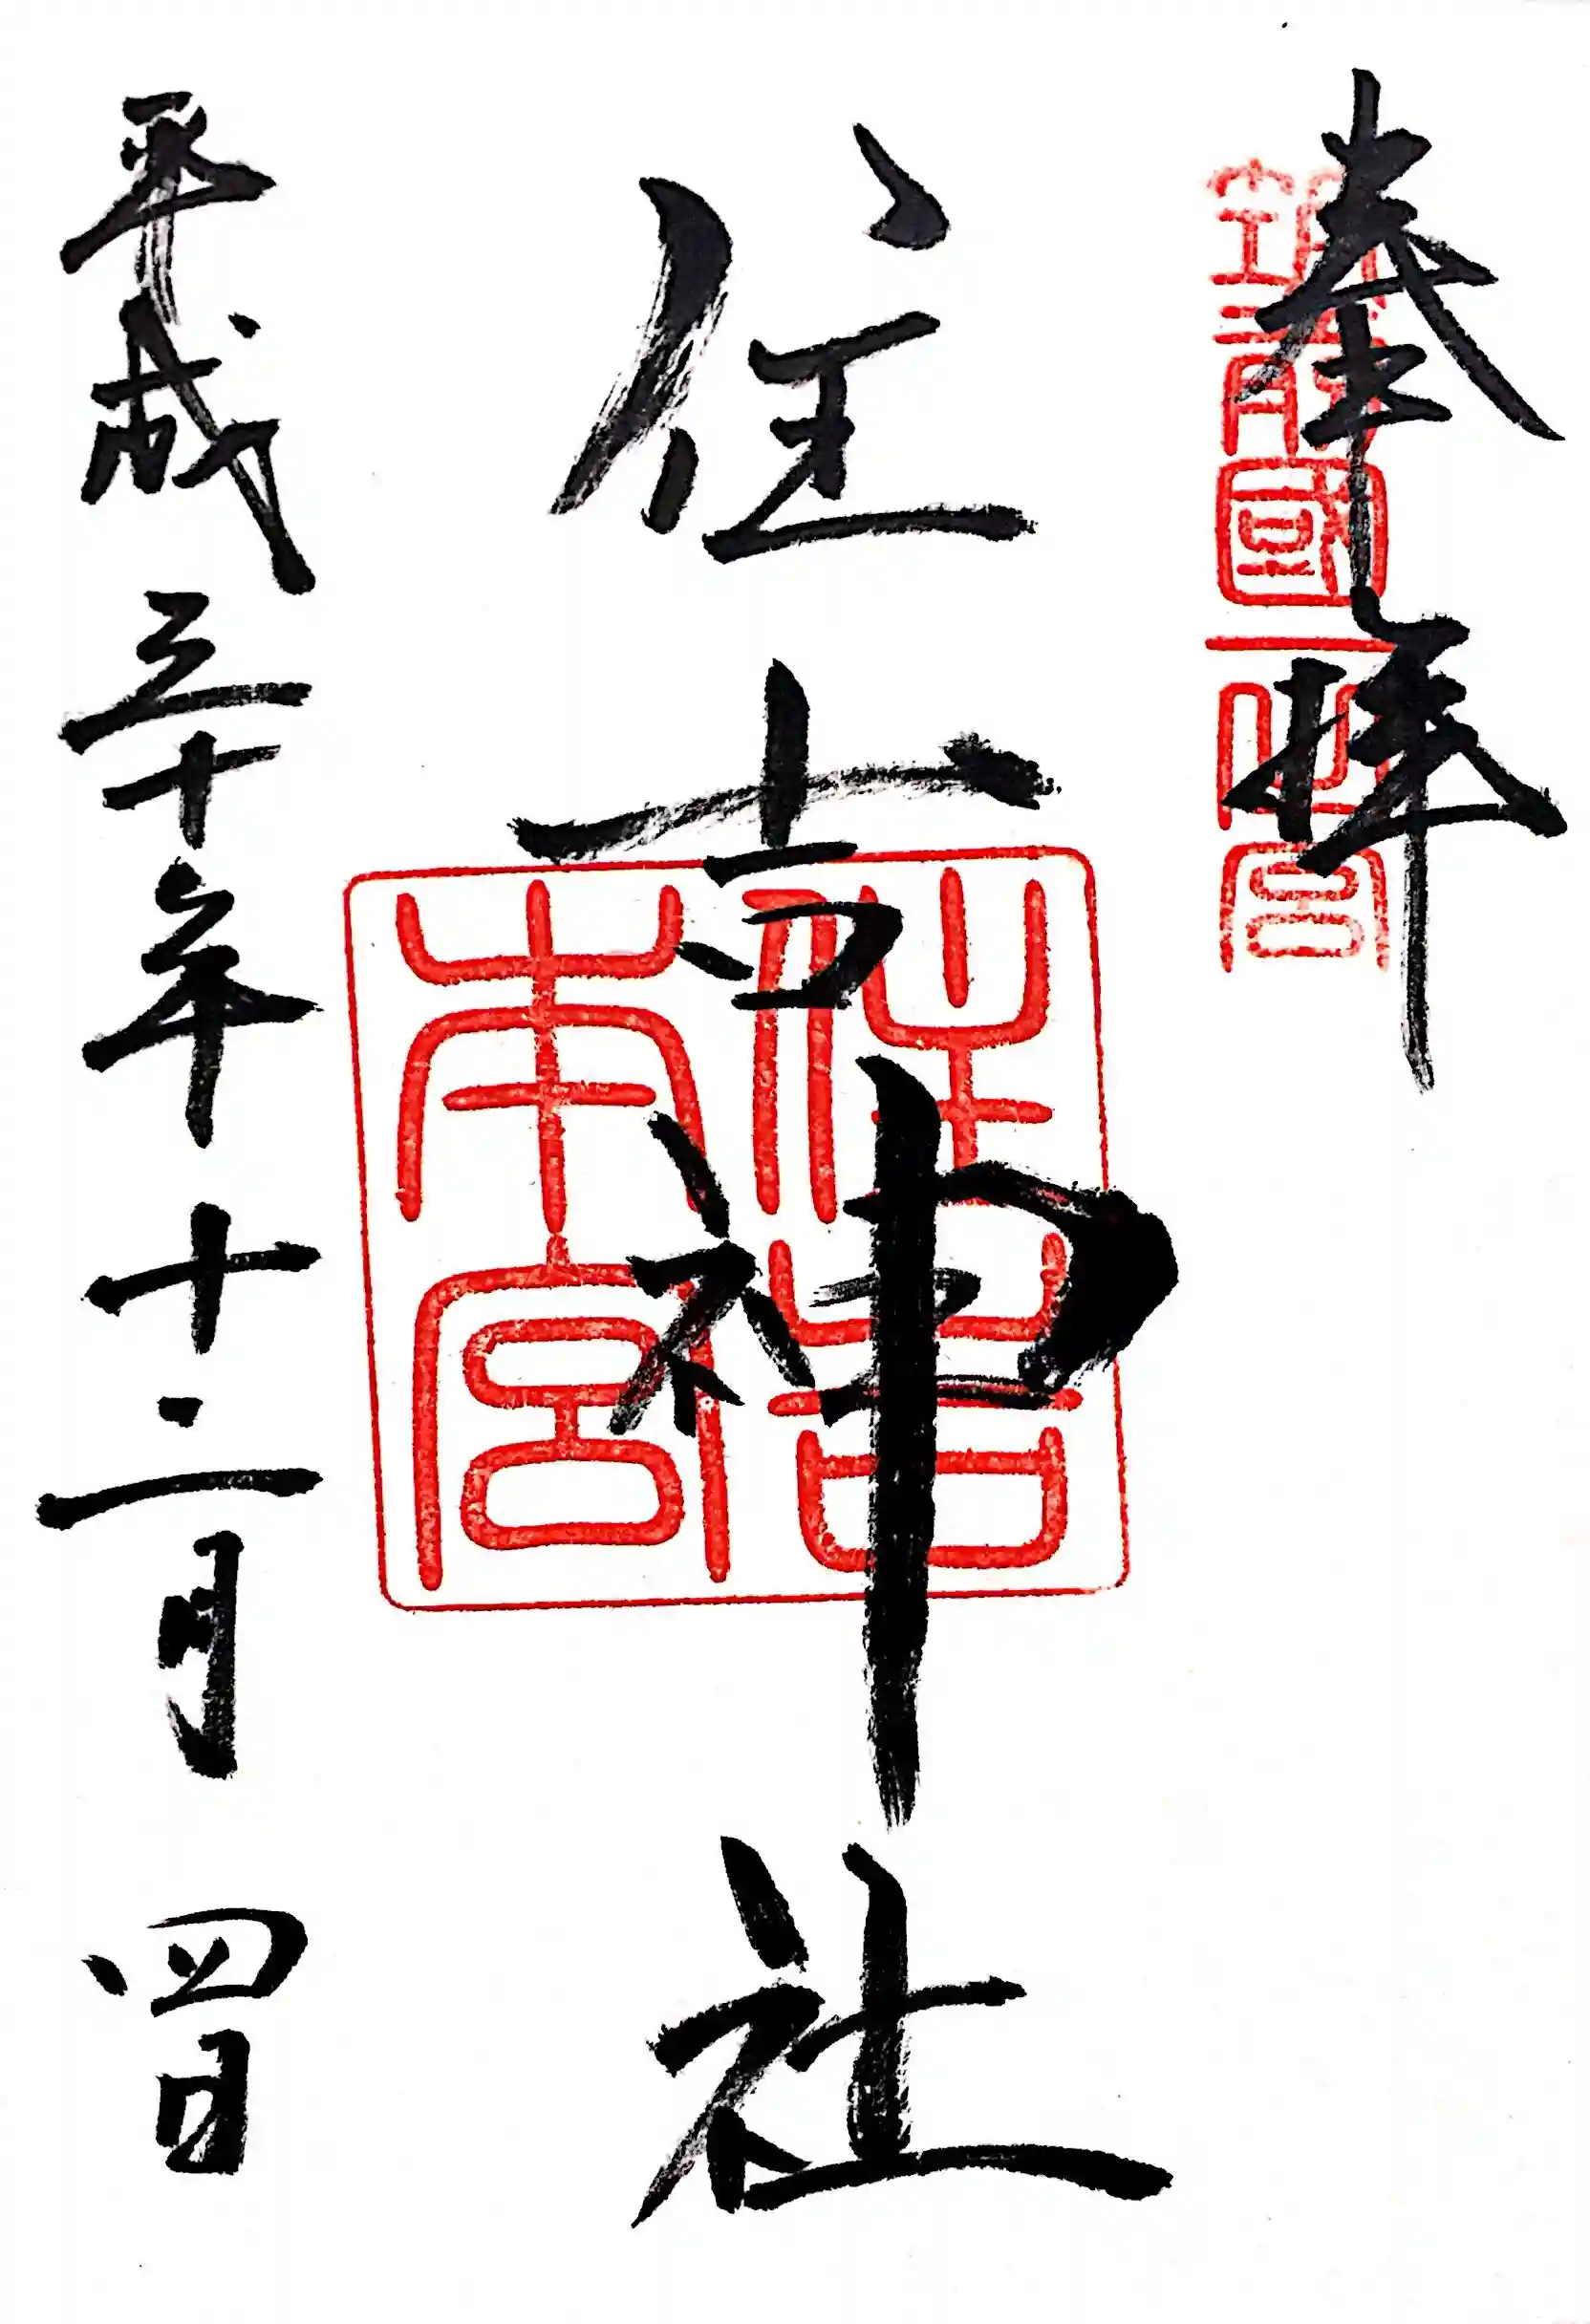 奉拝
筑前國一之宮
住吉神社
住吉
本宮
平成三十年十二月四日